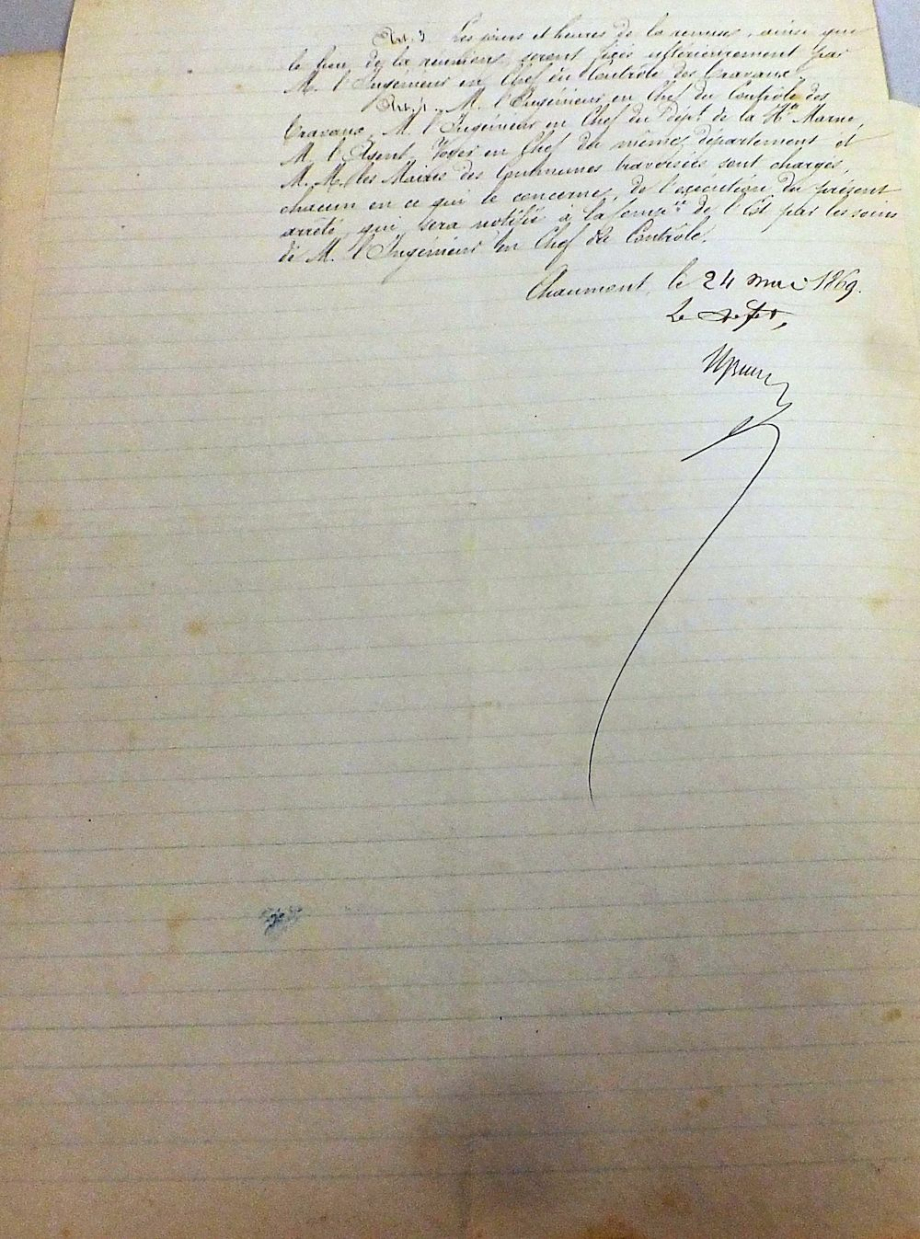 Art. 3. Les jours et heures de la remise, ainsi que
le lieu de la réunion, seront fixés ultérieurement par
M. l'Ingénieur en Chef du Contrôle des Travaux.
Art. 4. M. l'Ingénieur en Chef du Contrôle des
Travaux, M. l'Ingénieur en Chef du Dépt de la Hte Marne,
M. l'Agent Voyer en Chef du même département et
M.M. les Maires des Communes traversées sont chargés,
chacun en ce qui le concerne, de l'exécution du présent
arrêté qui sera notifié à la Comp.ie de l'Est par les soins
de M. l'Ingénieur en Chef du Contrôle.
Chaumont, le 24 mai 1869.
Le Préfet,